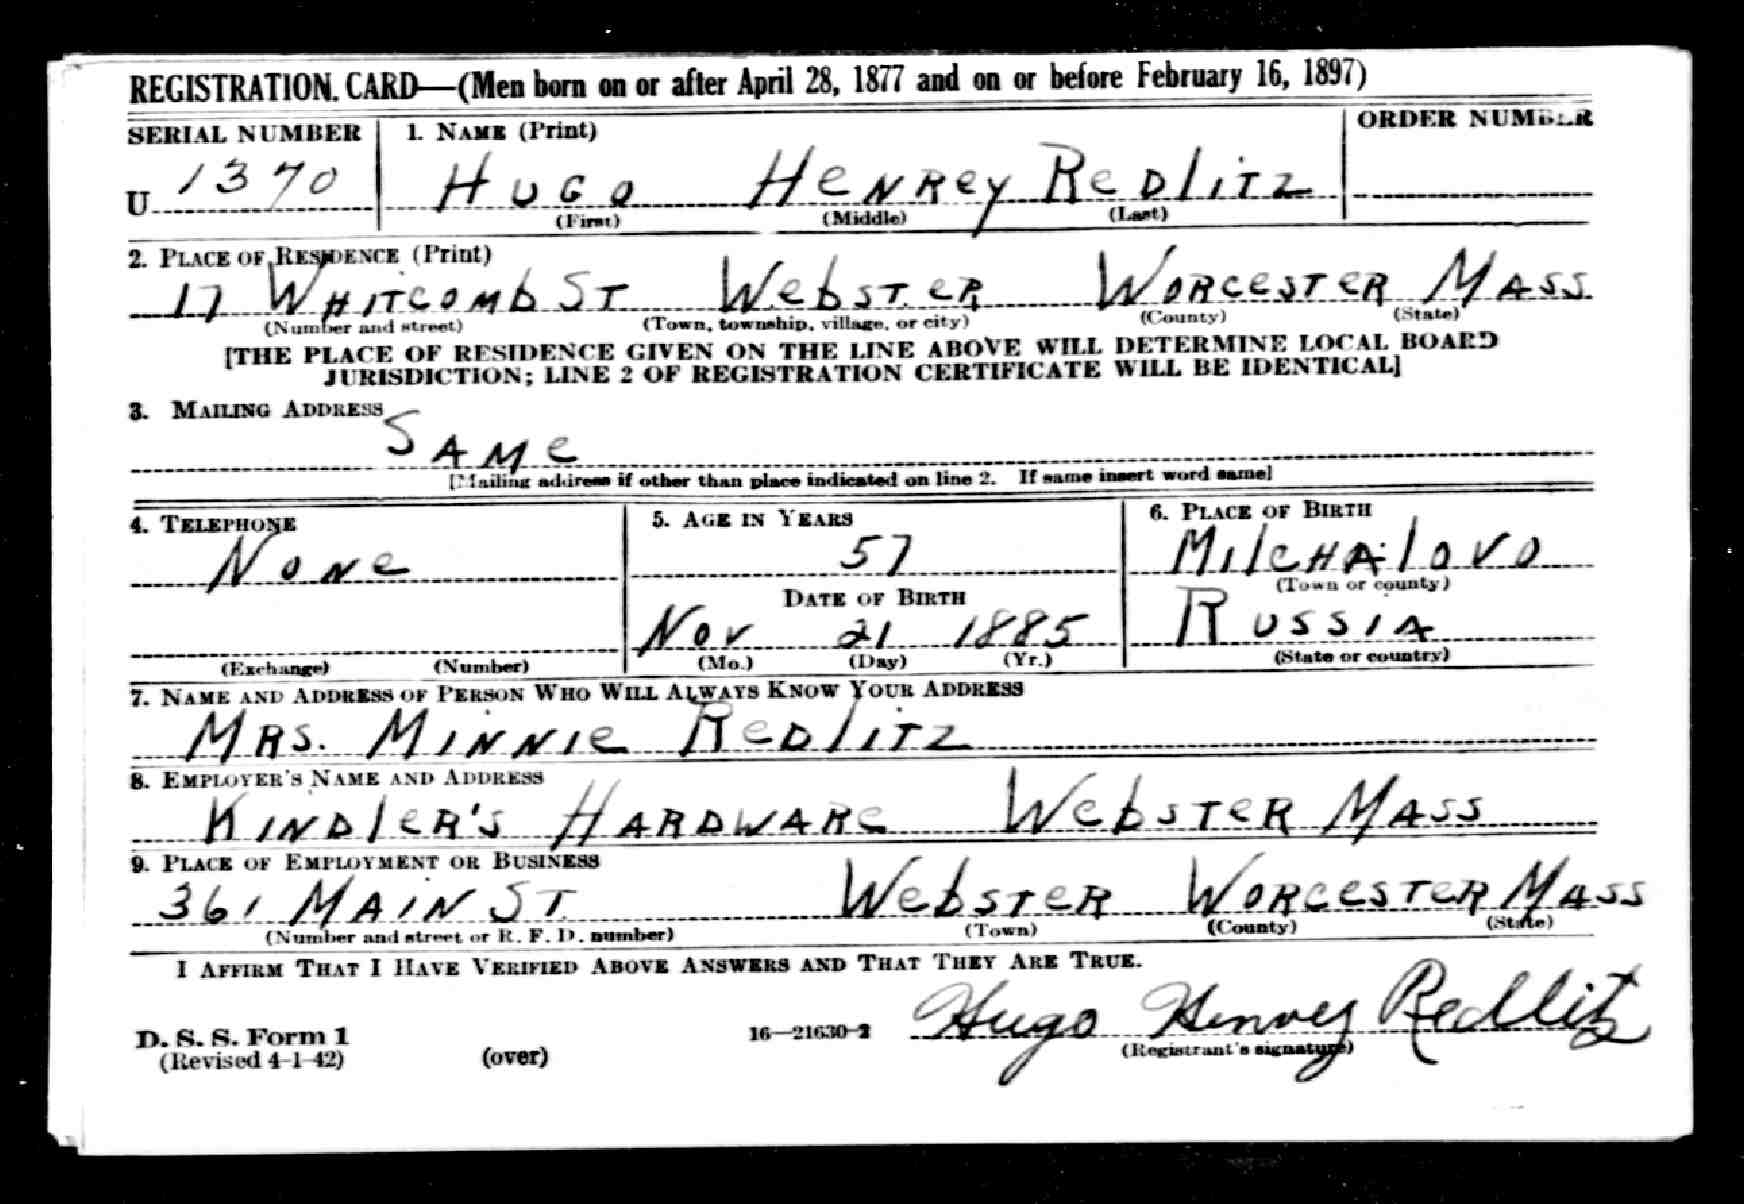 REGISTRATION CARD—(Men born on or after April 28, 1877 and on or before February 16, 1897)
SERIAL NUMBER 1. NAME (Print) ORDER NUMBER
U 1370 HUGO HENREY REDLITZ
(First) (Middle) (Last)
2. PLACE OF RESIDENCE (Print)
17 WHITCOMB ST WEBSTER WORCESTER MASS
(Number and street) (Town, township, village, or city) (County) (State)
[THE PLACE OF RESIDENCE GIVEN ON THE LINE ABOVE WILL DETERMINE LOCAL BOARD
JURISDICTION; LINE 2 OF REGISTRATION CERTIFICATE WILL BE IDENTICAL]
3. MAILING ADDRESS
SAME
[Mailing address if other than place indicated on line 2. If same insert word same]
4. TELEPHONE 5. AGE IN YEARS 6. PLACE OF BIRTH
NONE 57 MILCHAILOVO
(Town or county)
DATE OF BIRTH
NOV 21 1885 RUSSIA
(Exchange) (Number) (Mo.) (Day) (Yr.) (State or country)
7. NAME AND ADDRESS OF PERSON WHO WILL ALWAYS KNOW YOUR ADDRESS
MRS. MINNIE REDLITZ
8. EMPLOYER'S NAME AND ADDRESS
KINDLER'S HARDWARE WEBSTER MASS
9. PLACE OF EMPLOYMENT OR BUSINESS
361 MAIN ST. WEBSTER WORCESTER MASS
(Number and street or R. F. D. number) (Town) (County) (State)
I AFFIRM THAT I HAVE VERIFIED ABOVE ANSWERS AND THAT THEY ARE TRUE.
Hugo Henrey Redlitz
D. S. S. Form 1 16—21630-2 (Registrant's signature)
(Revised 4-1-42) (over)